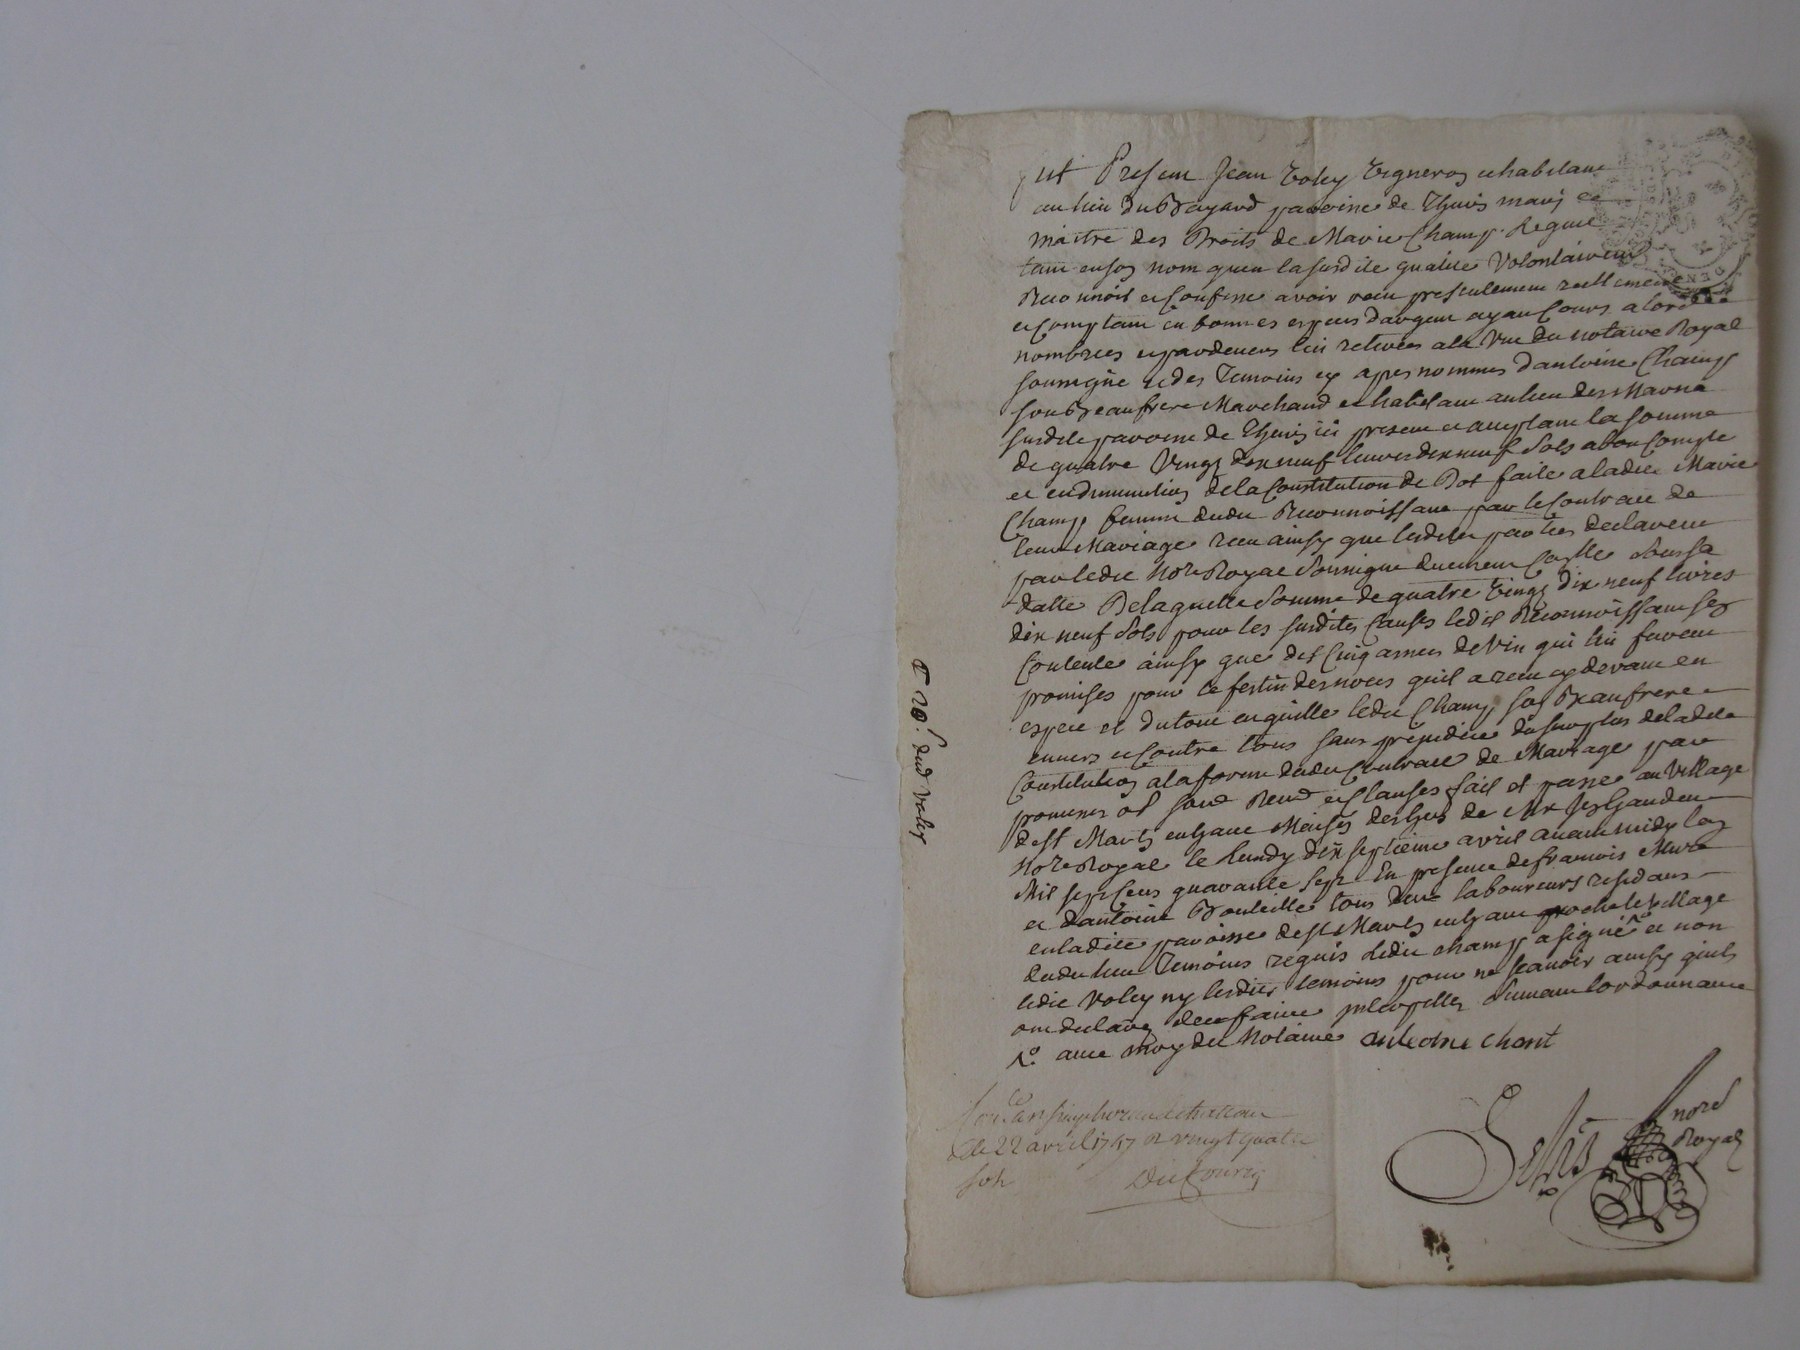 fut Present Jean Voley Vigneron et habitant
au lieu du Bayard parroisse de Thuris mary et
maitre des Droits de Marie Champ Lequel
tant en son nom quen la susdite qualité Volontairement
Reconnoist et Confesse avoir receu presentement reellement
et Comptant en bonnes especes dargent ayant Cours alord
nombrees et pardevers lui retirées ala Vue du notaire Royal
soussigne et des Temoins cy apres nommes dantoine Champ
son Beaufrere Marchand et habitant au lieu des
susdite parroisse de Thuris ici present et acceptant la somme
de quatre Vingt dix neuf livres dix neuf sols abon Compte
et en diminution de la Constitution de Dot faite a ladite Marie
Champ femme dudit Reconnoissant par le Contract de
leur Mariage receu ainsy que lesdites parties declarent
par ledit Nore Royal soussigne sous sa
datte De laquelle somme de quatre Vingt dix neuf livres
dix neuf sols pour les susdites Causes ledit Reconnoissant se
Contente ainsy que des Cinq asnees de Vin qui lui furent
promises pour le festin des noces quil a receu cy devant en
espece et du tout en quitte ledit Champ son Beaufrere
envers et Contre tous sans prejudice du surplus de ladite
Constitution a la forme dudit Contract de Mariage par
promesses obl soub Renon et Clauses fait et passé au Village
de St Martin Maison de
Nore Royal le Lundy dix septieme avril avant midy lan
Mil sept Cens quarante sept En presence de francois
et dantoine Bouteille tous deux laboureurs residans
en ladite parroisse de St Martin proche le Village
dudit lieu Temoins requis Ledit champ a signé et non
ledit Voley ny lesdits temoins pour ne scavoir ainsy quils
ont declaré de ce faire interpelles suivant lordonnance
avec moy dit Notaire antoine chant
nore
Royal
le 22 avril 1747 R vingt quatre
sols